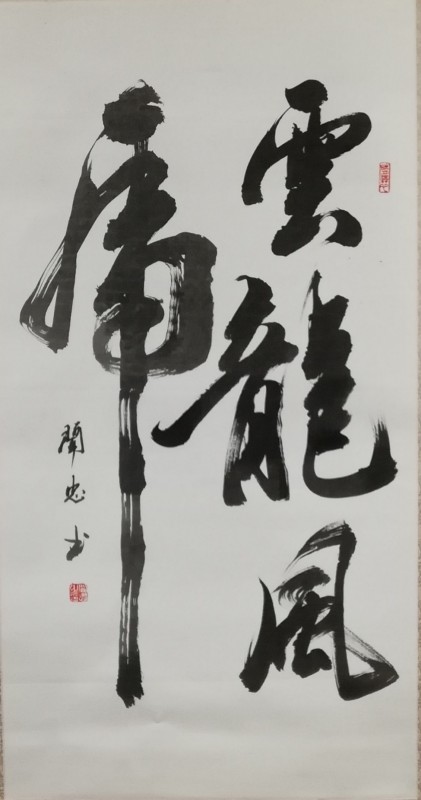 雲龍風
虎
蘭忠书